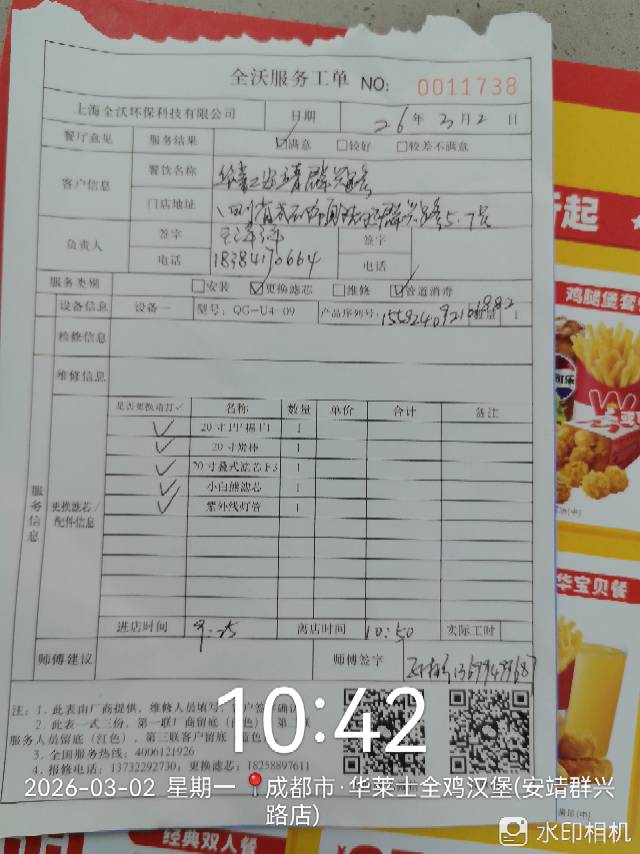 全沃服务工单 NO: 0011738
上海全沃环保科技有限公司 日期 26年3月2日
餐厅意见 服务结果 ☑满意 □较好 □较差不满意
客户信息 餐饮名称
门店地址
负责人 签字 签字
电话 18384190664 电话
服务类别 □安装 ☑更换滤芯 □维修 ☑管道消毒
设备信息 设备一 型号: QG-U4-09 产品序列号:
检修信息
维修信息
服务信息
更换滤芯/配件信息
是否更换请打✓ 名称 数量 单价 合计 备注
✓ 20寸PP棉F1 1
✓ 20寸炭棒 1
✓ 20寸叠式滤芯F3 1
✓ 小白熊滤芯 1
✓ 紫外线灯管 1
进店时间 9:25 离店时间 10:50 实际工时
师傅建议 师傅签字
注: 1、此表由厂商提供, 维修人员填写
2、此表一式三份, 第一联厂商留底
服务人员留底(红色), 第三联客户留底
3、全国服务热线: 4006121926
4、报修电话: 13732292730; 更换滤芯: 18258897611
10:42
2026-03-02 星期一 成都市·华莱士全鸡汉堡(安靖群兴路店)
水印相机
起
鸡腿堡套
可乐
华宝贝餐
经典双人餐